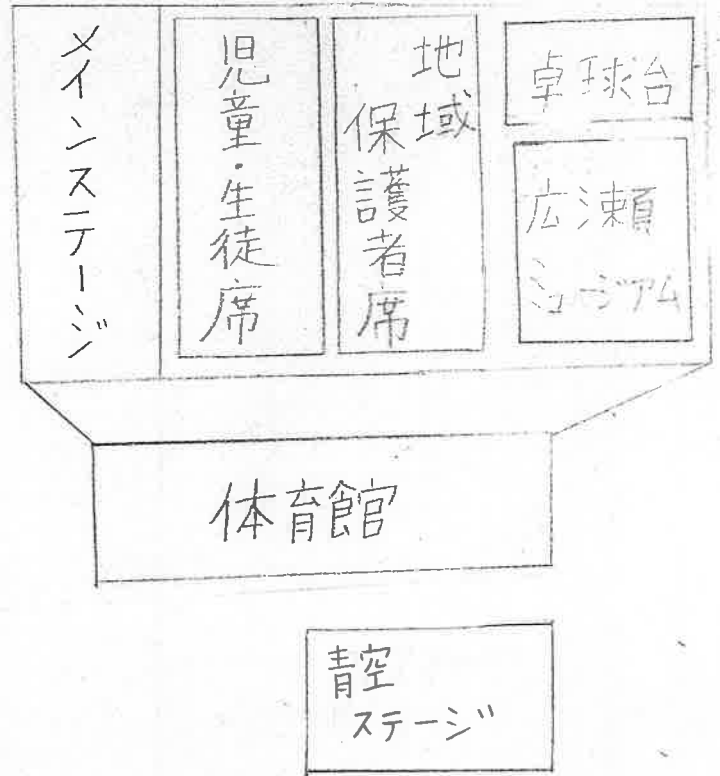 メインステージ
児童・生徒席
地域
保護者席
卓球台
広瀬
ミュージアム
体育館
青空
ステージ